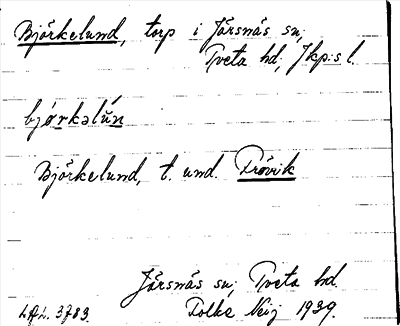 Björkelund, torp i Järsnäs sn,
Tveta hd, Jkp:s l.
bjørkəlún
Björkelund, t. und. Frövik
Järsnäs sn, Tveta hd.
3783. Folke 1939.